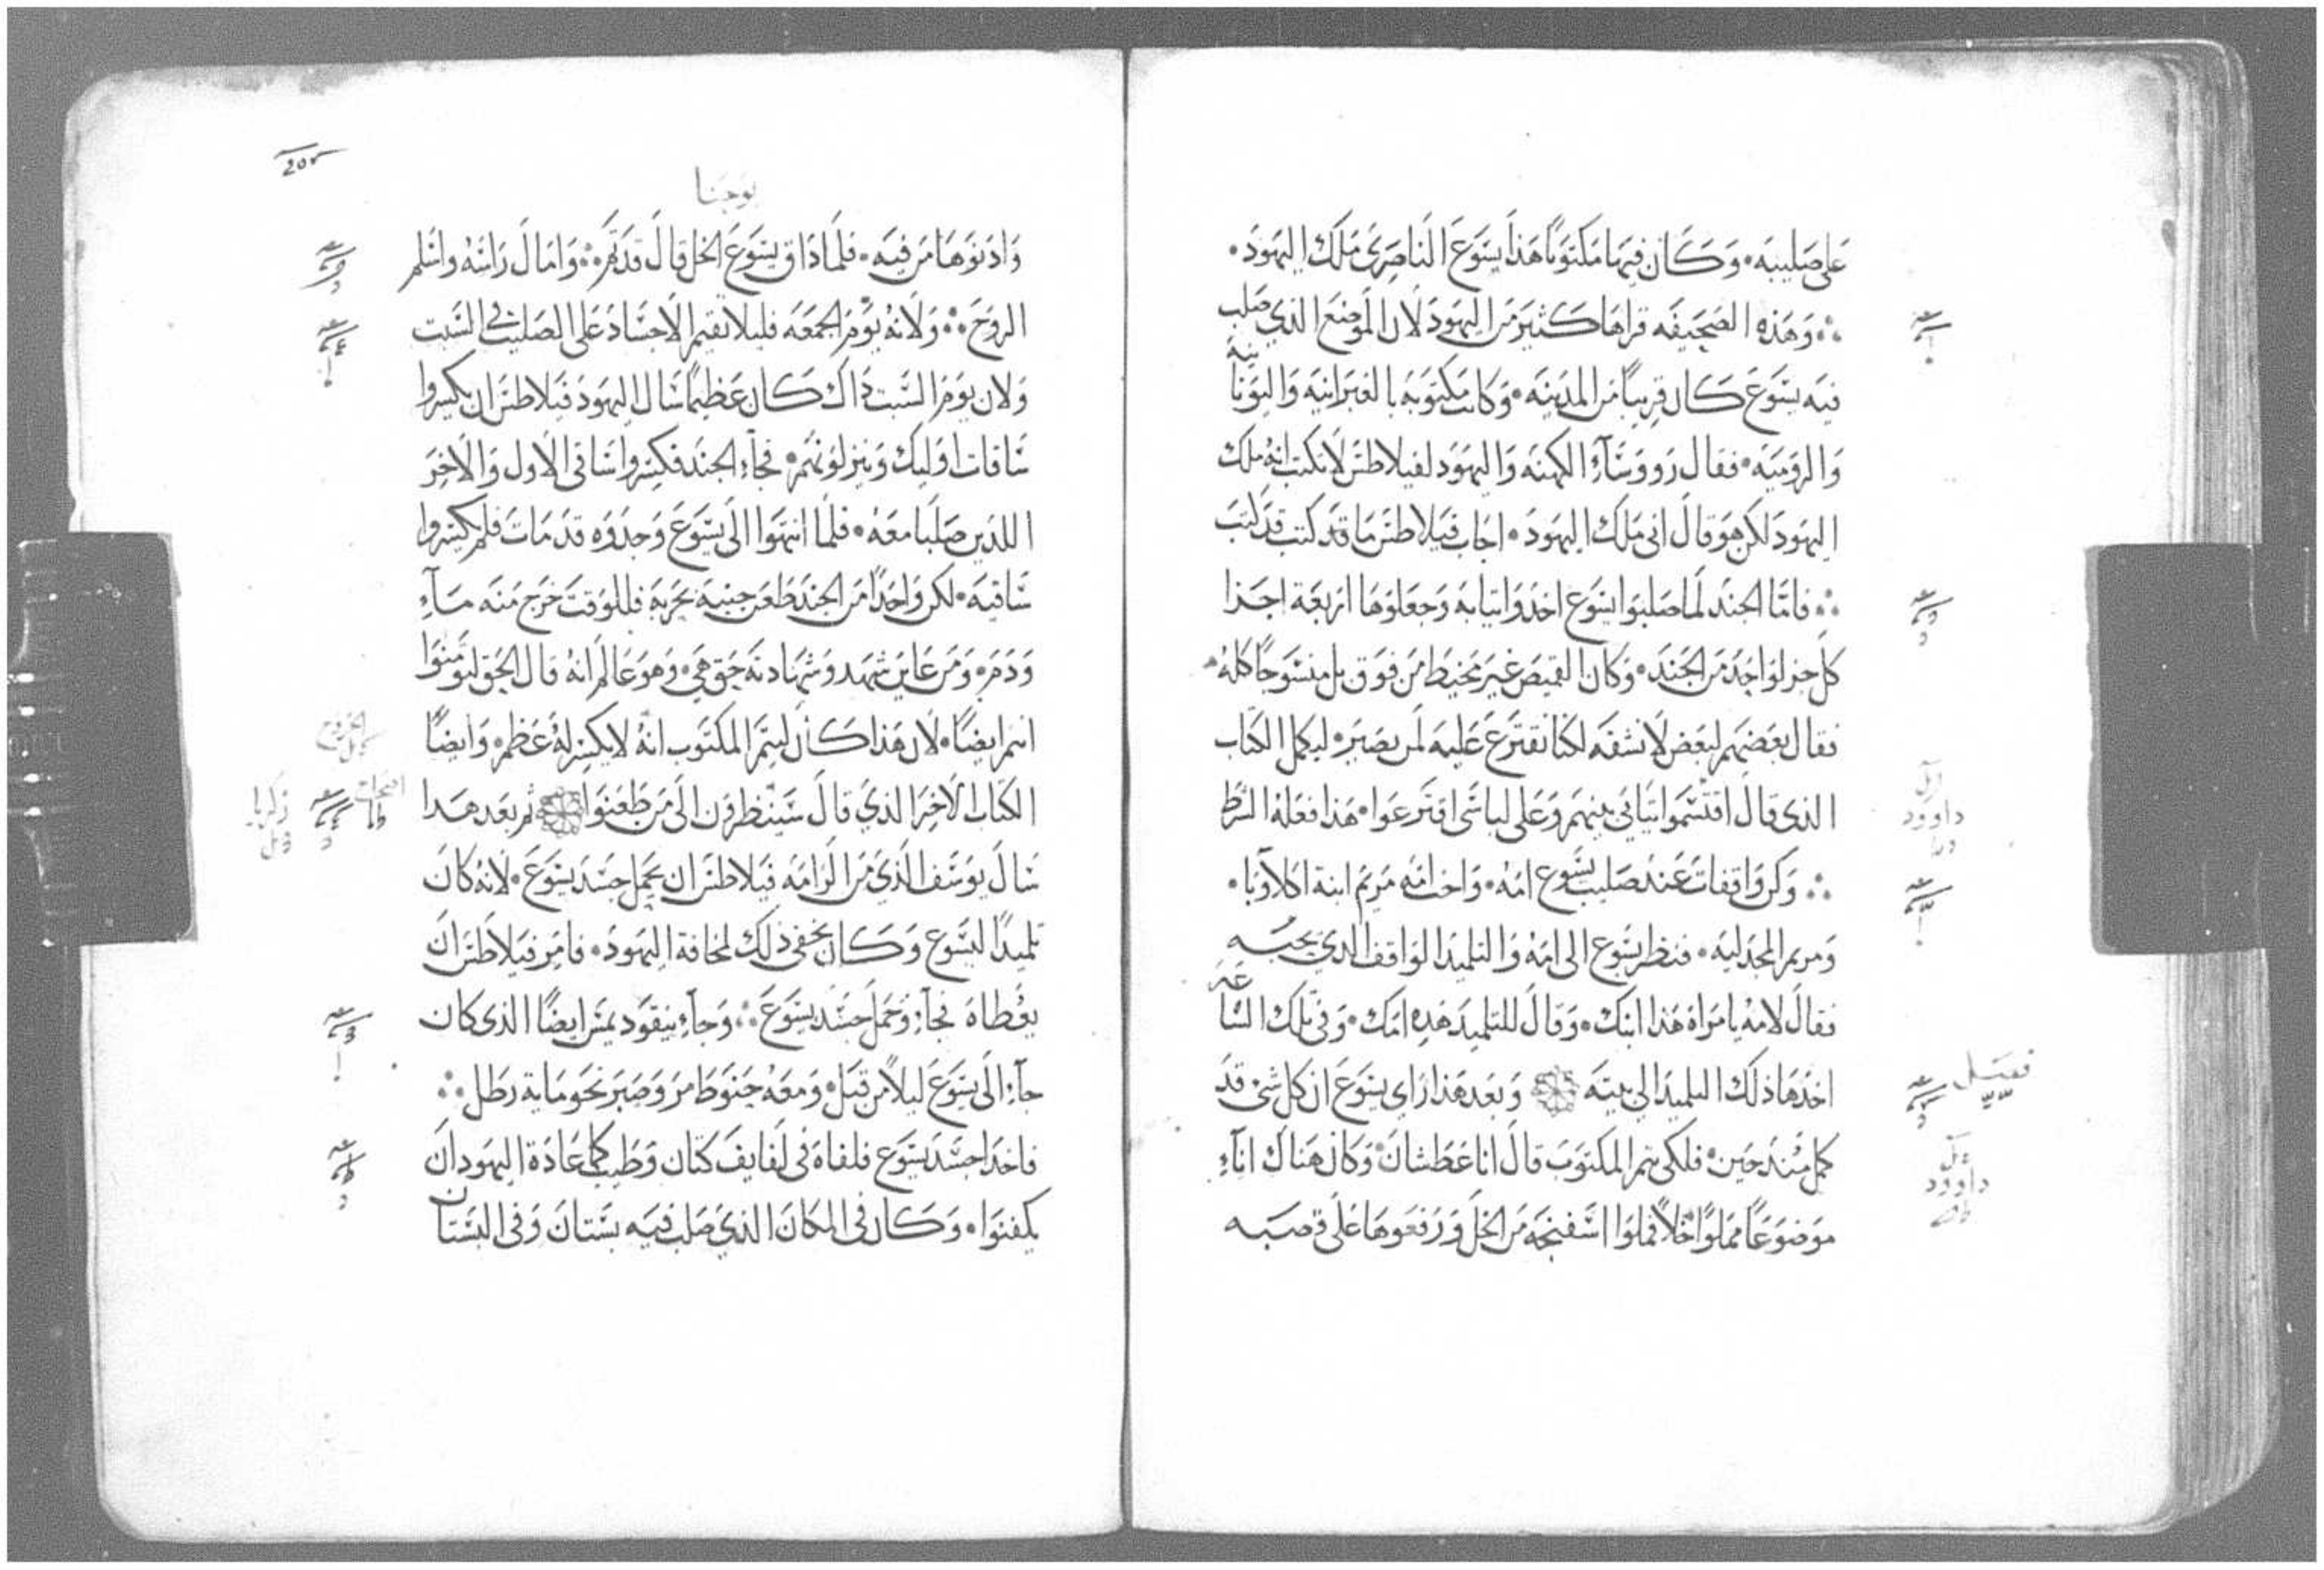 على صليبه • وكان فيها مكتوبًا هذا يسوع الناصرى ملك اليهود •
وهذه الصحيفه قراها كثير من اليهود لان الموضع الذي صلب
فيه يسوع كان قريبًا من المدينه • وكانت مكتوبه بالعبرانيه واليونانيه
والروميه • فقال رووسآء الكهنه واليهود لفيلاطس لا تكتب انه ملك
اليهود لكن هو قال انى ملك اليهود • اجاب فيلاطس ما قد كتبت قد كتبت
فامّا الجند لما صلبوا يسوع اخدوا ثيابه وجعلوها اربعة اجزا
كل جزو لواحد من الجند • وكان القميص غير مخيط من فوق بل منسوجًا كله •
فقال بعضهم لبعض لا نشقه لكنا نقترع عليه لمن يصير • ليكمل الكتاب
الذى قال اقتسموا ثيابي بينهم وعلى لباسى اقترعوا • هذا فعله الشرط
وكن واقفات عند صليب يسوع امه • واخت امه مريم ابنة اكلاوبا •
ومريم المجدليه • فنظر يسوع الى امه والتلميد الواقف الدي يحبه
فقال لامه يا مراة هذا ابنك • وقال للتلميد هده امك • وفي تلك الساعه
اخدها ذلك التلميد الى بيته وبعد هذا راى يسوع ان كل شى قد
كمل مند حين • فلكى يتم المكتوب قال انا عطشان • وكان هناك انآء
موضوعًا مملوًا خلاً فملوا اسفنجه من الخل ورفعوها على قصبه
داوود
داوود
يوحنا
وادنوها من فيه • فلما ذاق يسوع الخل قال قد تم وامال راسه واسلم
الروح ولانه يوم الجمعه فليلا تقيم الاجساد على الصليب في السبت
ولان يوم السبت ذاك كان عظيمًا سال اليهود فيلاطس ان يكسروا
ساقات اوليك وينزلونهم • فجآء الجند فكسروا ساقى الاول والاخر
اللدين صلبا معه • فلما انتهوا الى يسوع وجدوه قد مات فلم يكسروا
ساقيه • لكن واحدًا من الجند طعن جنبه بحربة فللوقت خرج منه مآء
ودم • ومن عاين شهد وشهادته حق هي • وهو عالم انه قال الحق لتومنوا
انتم ايضًا • لان هذا كان ليتم المكتوب انه لا يكسر له عظم • وايضًا
الكتاب الاخر الذي قال سينظرون الى من طعنوا ثم بعد هدا
سال يوسف الذي من الرامه فيلاطس ان يحمل جسد يسوع • لانه كان
تلميدًا ليسوع وكان يخفى ذلك لمخافة اليهود • فامر فيلاطس ان
يعطاه فجآء وحمل جسد يسوع وجآء نيقوديمس ايضًا الذى كان
جآء الى يسوع ليلاً من قبل • ومعه حنوط مر وصبر نحو ماية رطل
فاخدا جسد يسوع فلفاه فى لفايف كتان وطيب كما عادة اليهود ان
يكفنوا • وكان فى المكان الذي صلب فيه بستان وفى البستان
الخروج
زكريا